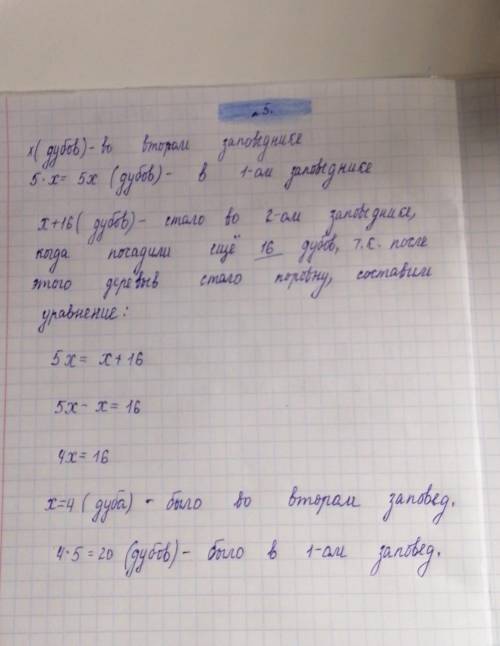 5.
x (дубов) - во втором заповеднике
5·x = 5x (дубов) - в 1-ом заповеднике
x+16 (дубов) - стало во 2-ом заповеднике,
когда посадили ещё 16 дубов, т.к. после
этого деревьев стало поровну, составим
уравнение:
5x = x + 16
5x - x = 16
4x = 16
x=4 (дуба) - было во втором заповед.
4·5 = 20 (дубов) - было в 1-ом заповед.